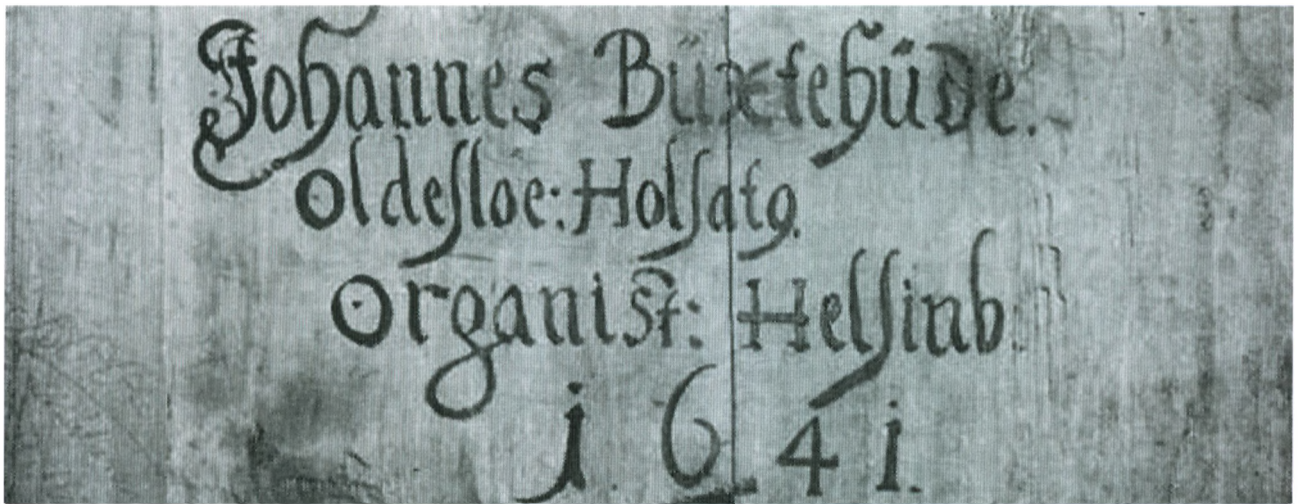 Johannes Büxtehüde.
Oldesloe: Holsatꝯ.
Organist: Helsinb:
1641.